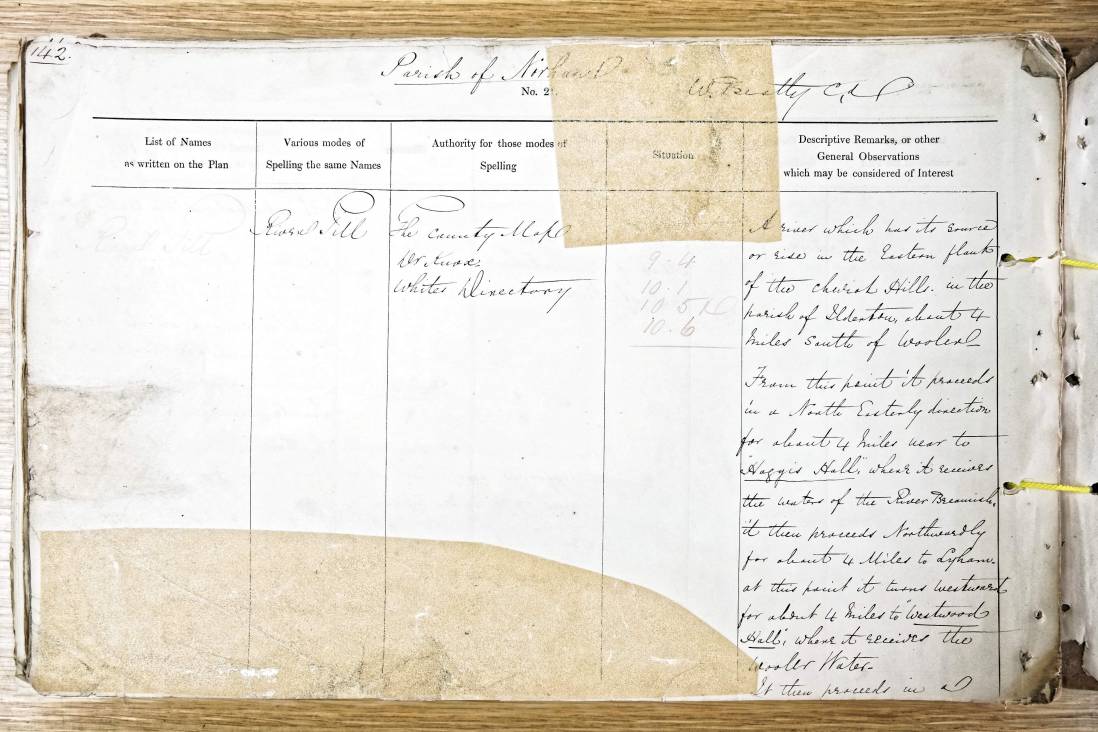 142.
Parish of Norham
No. 2.
W. Beatty C.d
List of Names
as written on the Plan
Various modes of
Spelling the same Names
Authority for those modes of
Spelling
Situation
Descriptive Remarks, or other
General Observations
which may be considered of Interest
River Till
River Till
The County Map
Dr Knox
Whites Directory
9.4
10.1
10.5
10.6
A river which has its source
or rise in the Eastern flank
of the church Hills. in the
parish of Ilderton, about 4
Miles South of Wooler
From this point it proceeds
in a North Easterly direction
for about 4 Miles near to
"Haggis Hall", where it receives
the waters of the River Breamish,
it then proceeds Northwardly
for about 4 Miles to Lyham.
at this point it turns westward
for about 4 Miles to "Westwood
Hall", where it receives the
Wooler Water.
It then proceeds in a